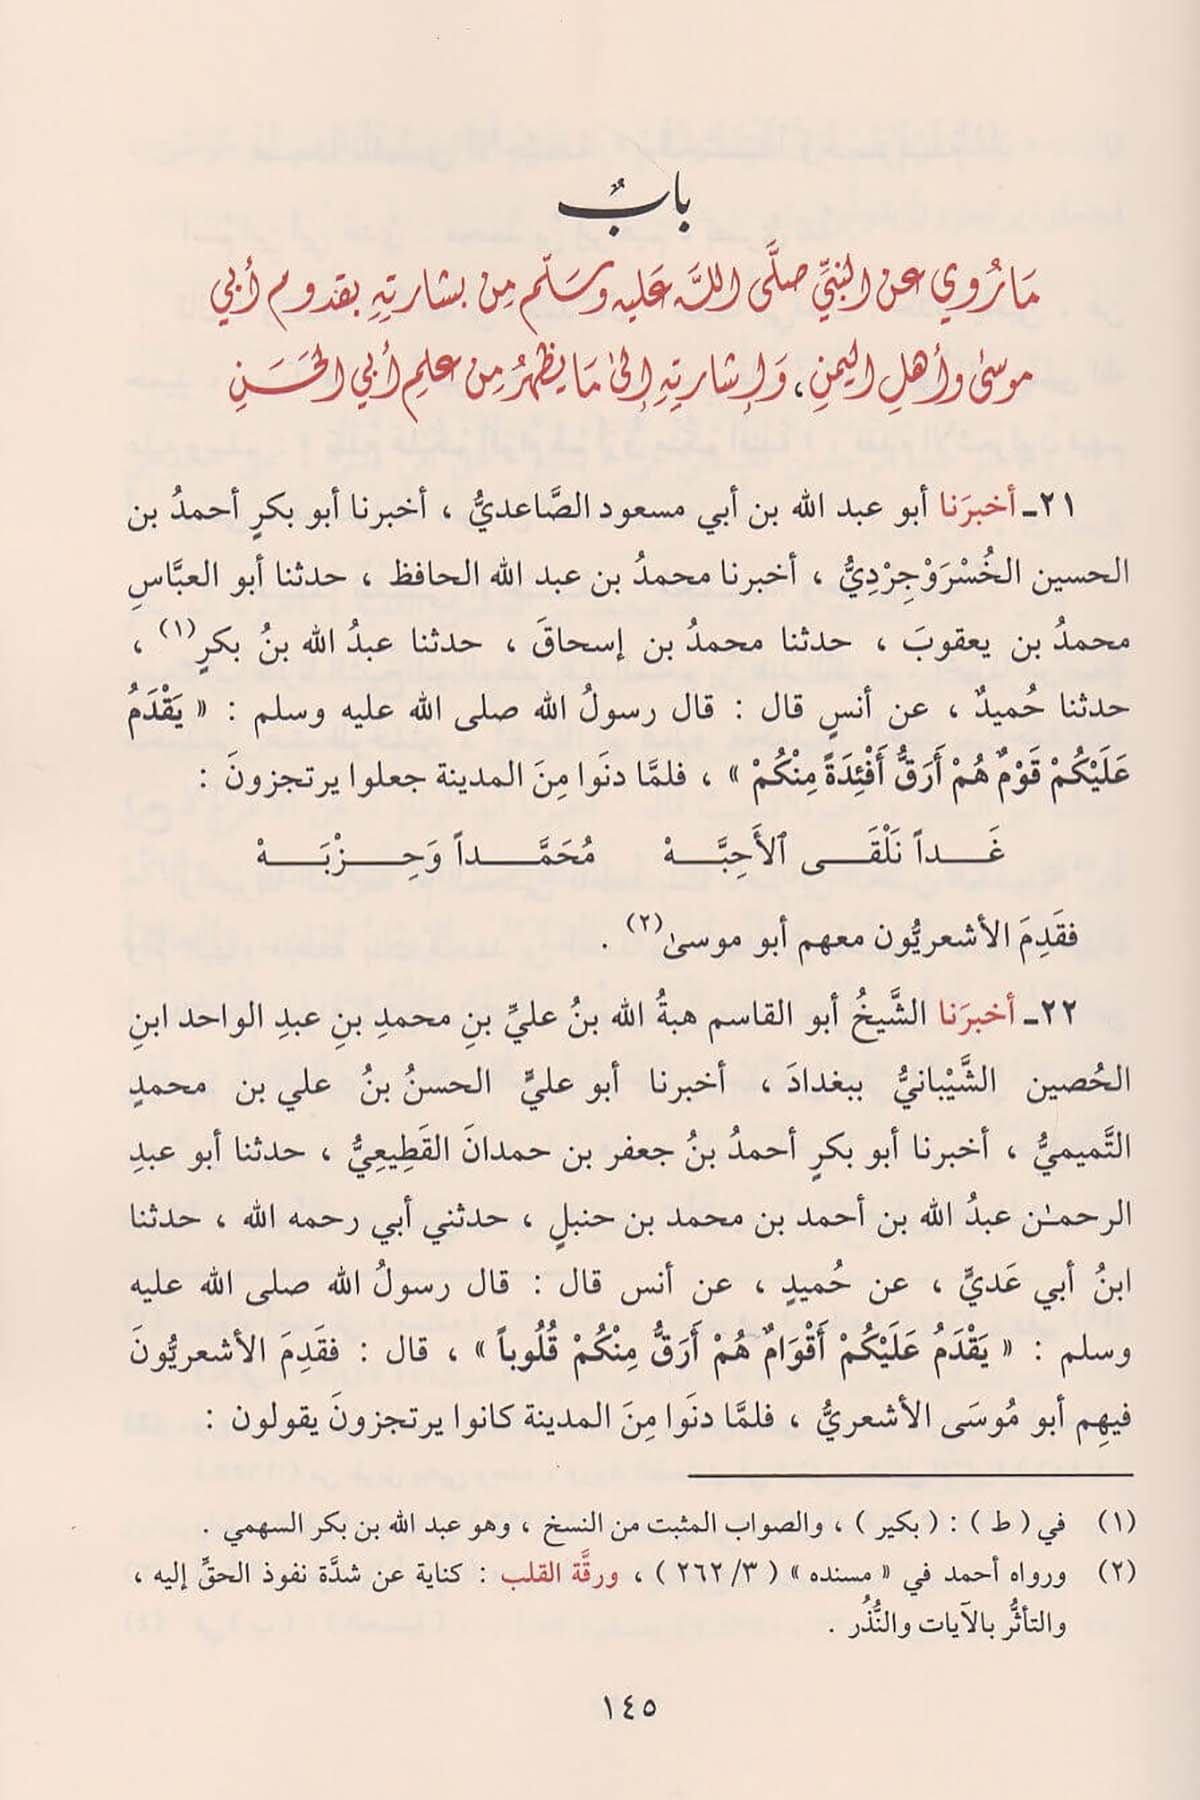 بابٌ
مَا رُوِي عن النبيِّ صلَّى اللهُ عَليه وسَلَّم مِن بشارتِهِ بقدوم أبي
موسىٰ وأهلِ اليمنِ ، وَإشارتِهِ إلىٰ مَا يظهرُ مِن علمِ أبي الحَسَنِ
٢١ـ أخبرَنا أبو عبد الله بن أبي مسعود الصَّاعديُّ ، أخبرنا أبو بكرٍ أحمدُ بن
الحسين الخُسْرَوْجِرْدِيُّ ، أخبرنا محمدُ بن عبد الله الحافظ ، حدثنا أبو العبَّاسِ
محمدُ بن يعقوبَ ، حدثنا محمدُ بن إسحاقَ ، حدثنا عبدُ الله بنُ بكرٍ(١) ،
حدثنا حُميدٌ ، عن أنسٍ قال : قال رسولُ الله صلى الله عليه وسلم : « يَقْدَمُ
عَلَيْكُمْ قَوْمٌ هُمْ أَرَقُّ أَفْئِدَةً مِنْكُمْ » ، فلمَّا دنَوا مِنَ المدينة جعلوا يرتجزونَ :
غَـــداً نَلْقَـــى ٱلأَحِبَّـــهْ مُحَمَّـــداً وَحِـــزْبَـــهْ
فقَدِمَ الأشعريُّون معهم أبو موسىٰ(٢) .
٢٢ـ أخبرَنا الشَّيخُ أبو القاسم هبةُ الله بنُ عليِّ بنِ محمدِ بنِ عبدِ الواحد ابنِ
الحُصين الشَّيْبانيُّ ببغدادَ ، أخبرنا أبو عليٍّ الحسنُ بنُ علي بن محمدٍ
التَّميميُّ ، أخبرنا أبو بكرٍ أحمدُ بنُ جعفر بن حمدانَ القَطِيعِيُّ ، حدثنا أبو عبدِ
الرحمـٰن عبدُ الله بن أحمد بن محمد بن حنبلٍ ، حدثني أبي رحمه الله ، حدثنا
ابنُ أبي عَديٍّ ، عن حُميدٍ ، عن أنس قال : قال رسولُ الله صلى الله عليه
وسلم : « يَقْدَمُ عَلَيْكُمْ أَقْوَامٌ هُمْ أَرَقُّ مِنْكُمْ قُلُوباً » ، قال : فقَدِمَ الأشعريُّونَ
فيهِم أبو مُوسَى الأشعريُّ ، فلمَّا دنَوا مِنَ المدينة كانوا يرتجزونَ يقولون :
(١) في ( ط ) : ( بكير ) ، والصواب المثبت من النسخ ، وهو عبد الله بن بكر السهمي .
(٢) ورواه أحمد في « مسنده » ( ٣/ ٢٦٢ ) ، ورقَّة القلب : كناية عن شدَّة نفوذ الحقِّ إليه ،
والتأثُّر بالآيات والنُّذُر .
١٤٥